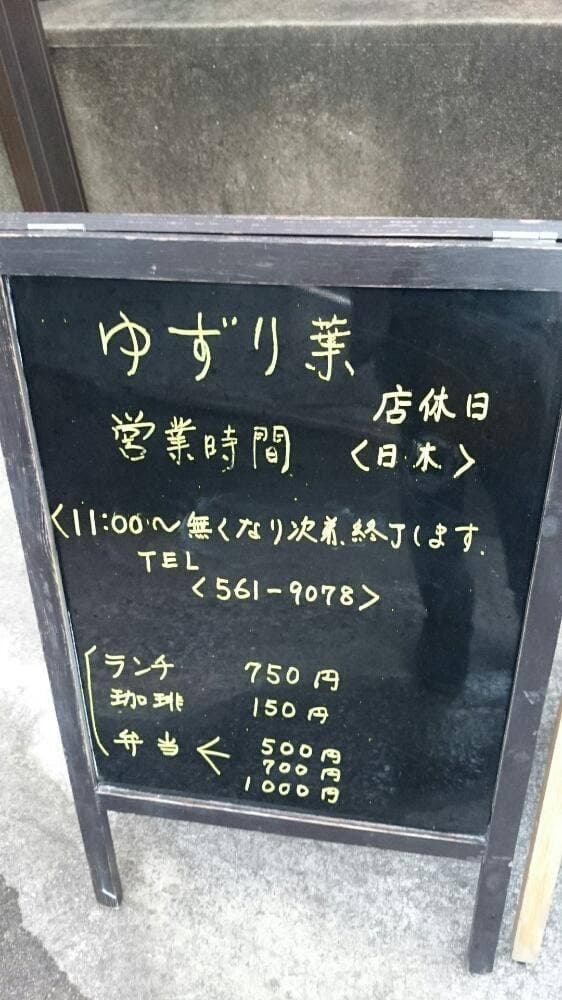 ゆずり葉
店休日
営業時間 <日木>
<11:00〜無くなり次着、終了します.
TEL
<561-9078>
ランチ 750円
珈琲 150円
弁当 ← 500円
700円
1000円